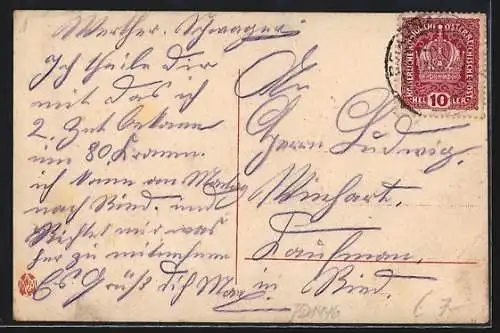 Werther Schwager!
Ich theile dir
mit das ich
2. Zent bekam
um 80 Kronen.
ich kom am Montag
nach Ried. und
Richtet mir was
her zu mitnehmen
Es Grüßt dich
An
Herrn Ludwig
Kaufman.
in Ried.
KAISERLICHE KÖNIGLICHE ÖSTERREICHISCHE POST
HELLER 10 HELLER